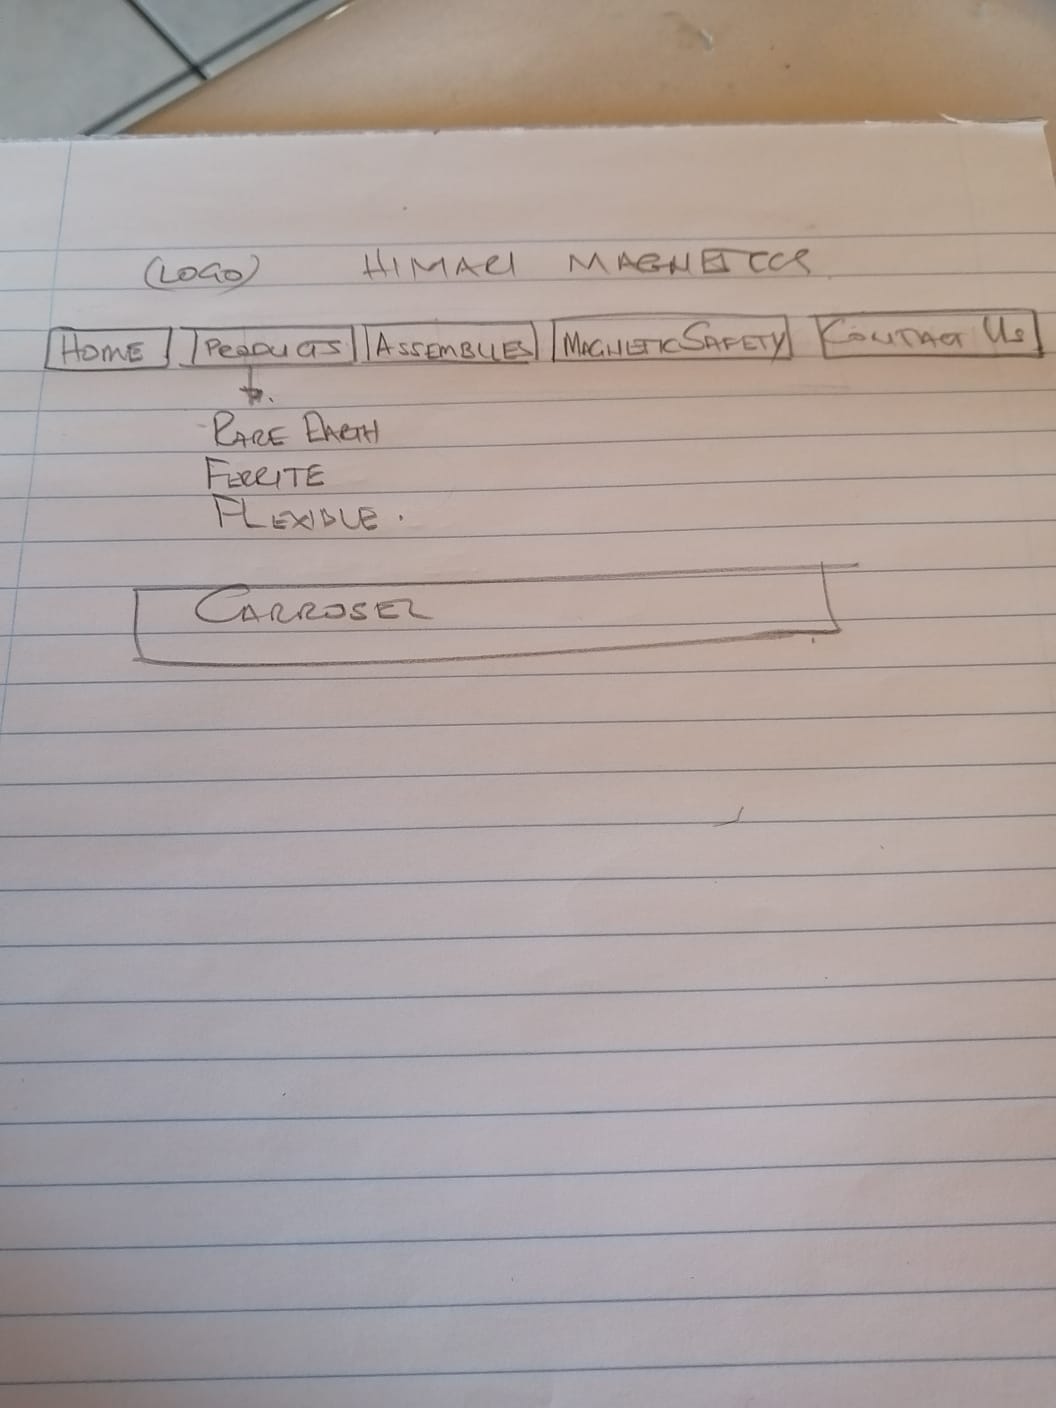 (LOGO) HIMARI MAGNETICS
HOME PRODUCTS ASSEMBLIES MAGNETIC SAFETY CONTACT US
RARE EARTH
FERRITE
FLEXIBLE.
CARROSEL